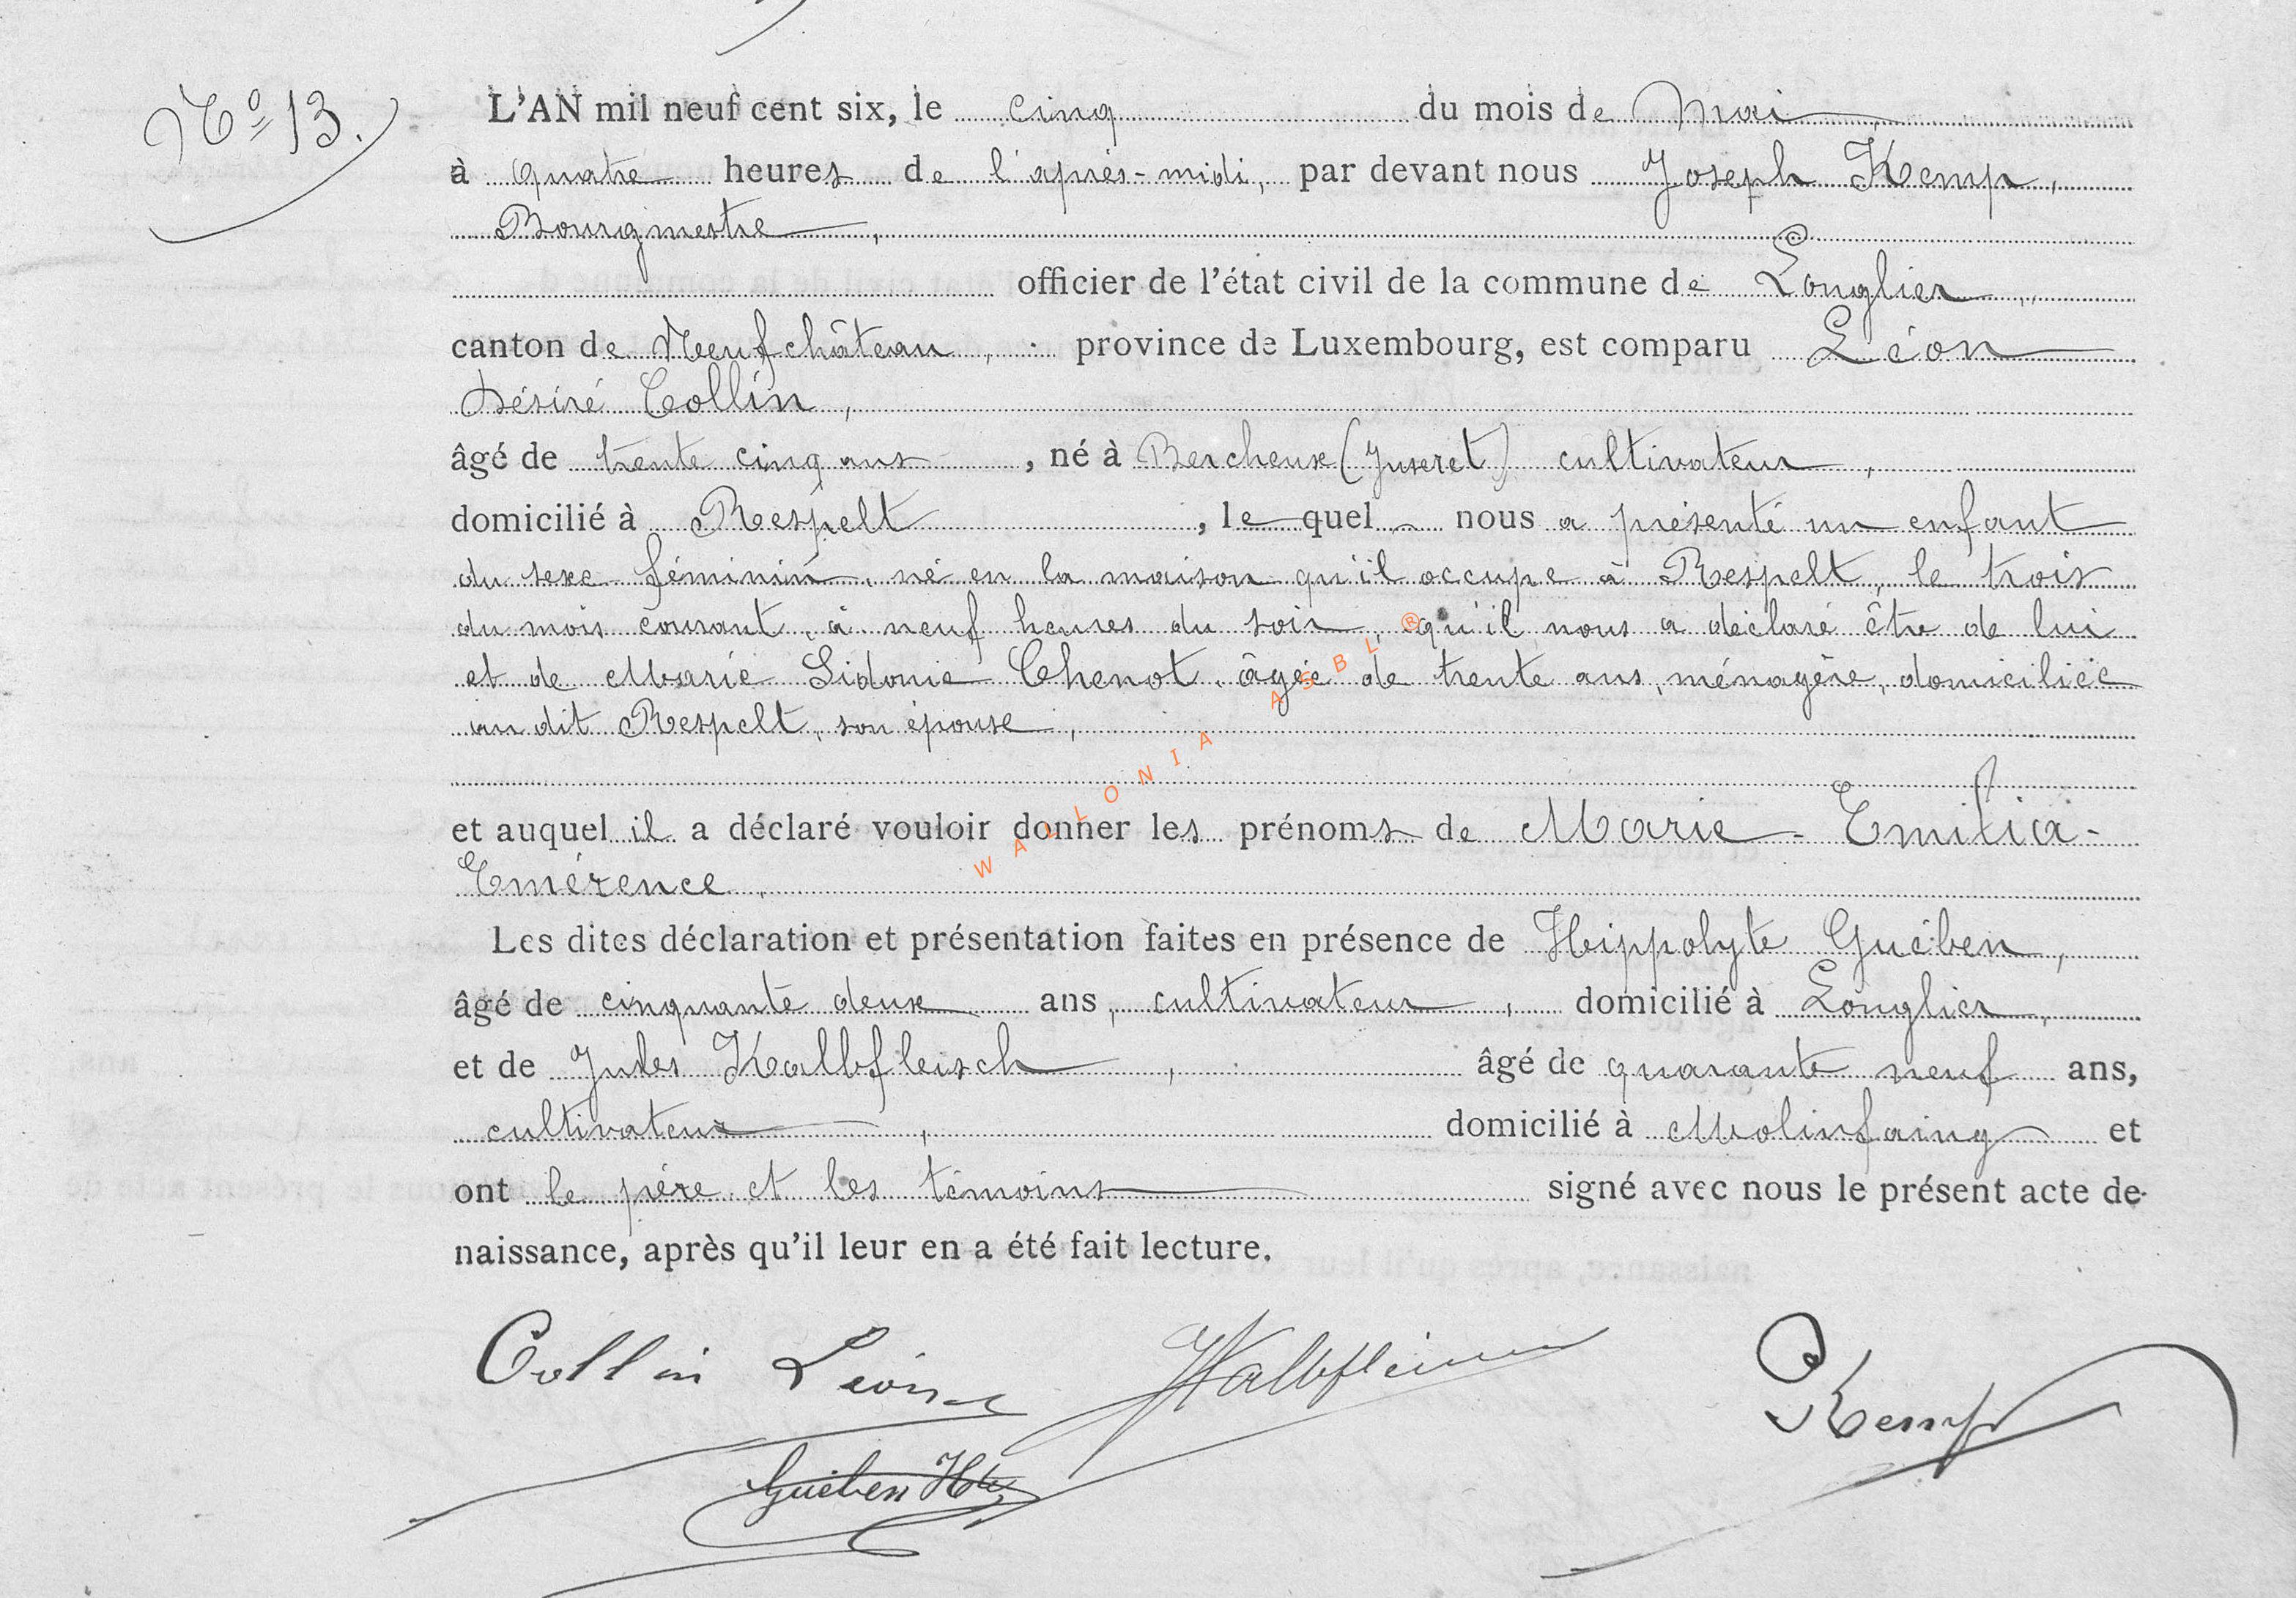 N° 13.
L'AN mil neuf cent six, le cinq du mois de Mai
à quatre heures de l'après-midi, par devant nous Joseph Kemp,
Bourgmestre,
officier de l'état civil de la commune de Longlier,
canton de Neufchâteau, province de Luxembourg, est comparu Léon
Désiré Collin,
âgé de trente cinq ans, né à Bercheux (Juseret) cultivateur,
domicilié à Respelt, lequel nous a présenté un enfant
du sexe féminin, né en la maison qu'il occupe à Respelt, le trois
du mois courant, à neuf heures du soir, qu'il nous a déclaré être de lui
et de Marie Sidonie Chenot, âgée de trente ans, ménagère, domiciliée
au dit Respelt, son épouse,
et auquel il a déclaré vouloir donner les prénoms de Marie-Emilia-
Emérence.
Les dites déclaration et présentation faites en présence de Hippolyte Guében,
âgé de cinquante deux ans, cultivateur, domicilié à Longlier,
et de Jules Kalbfleisch, âgé de quarante neuf ans,
cultivateur, domicilié à Molinfaing et
ont le père et les témoins signé avec nous le présent acte de
naissance, après qu'il leur en a été fait lecture.
Collin Léon Kalbfleisch Kemp
Guében Hte
WALLONIA ASBL ®